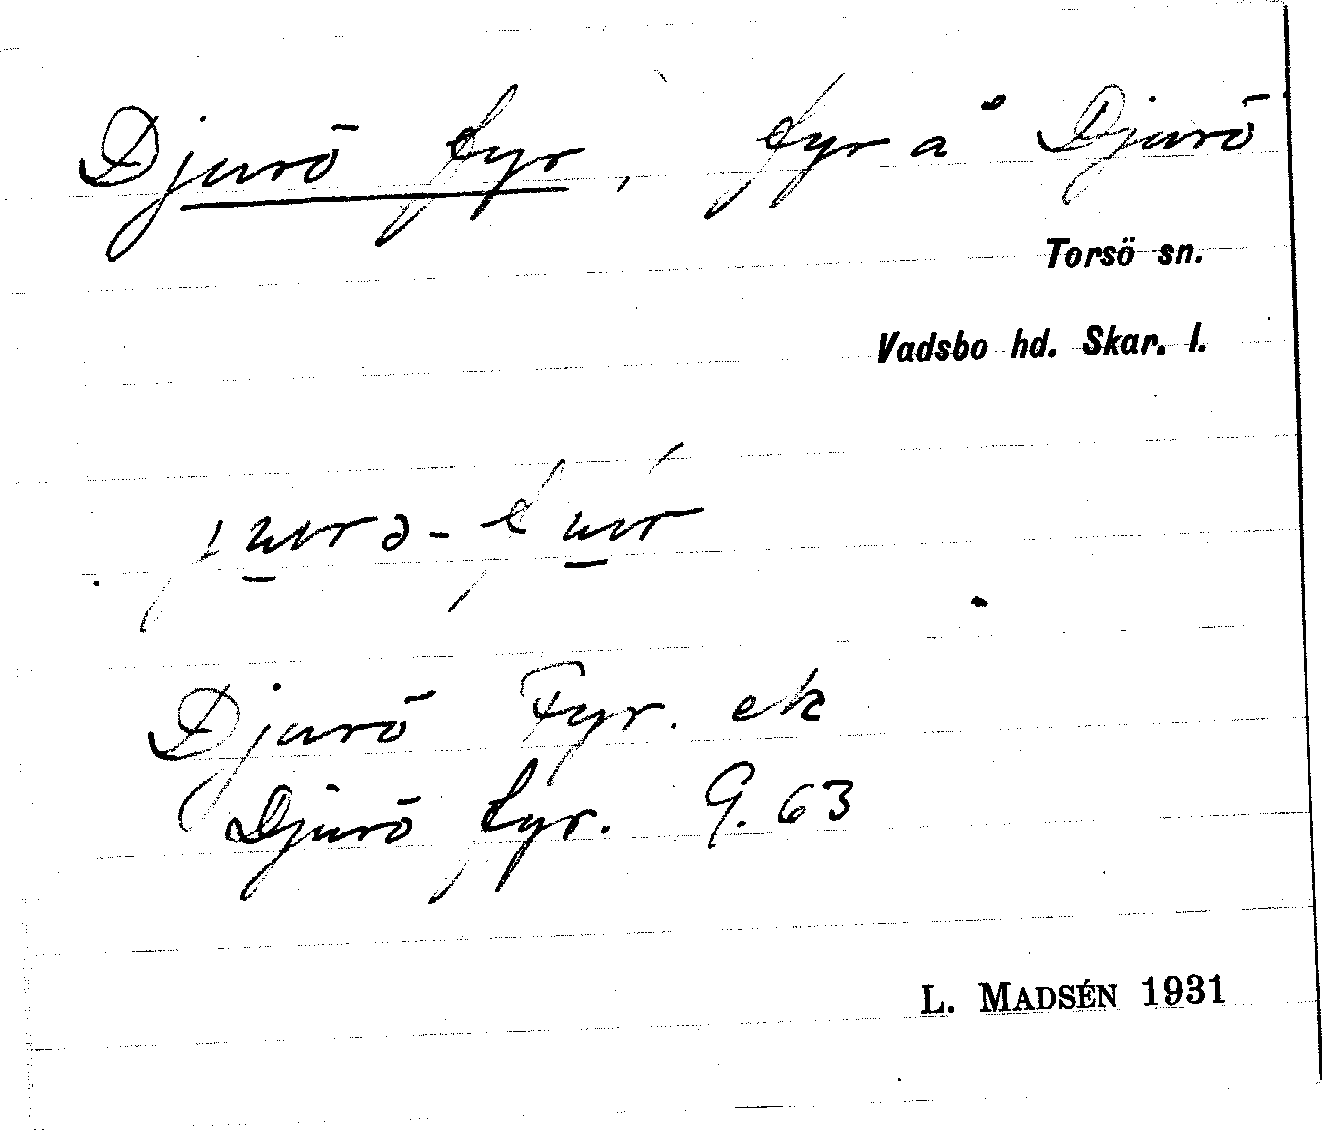 Djurö fyr, fyr å Djurö
Torsö sn.
Vadsbo hd. Skar. l.
Djurö Fyr. ek
Djurö fyr. G. 63
L. MADSÉN 1931